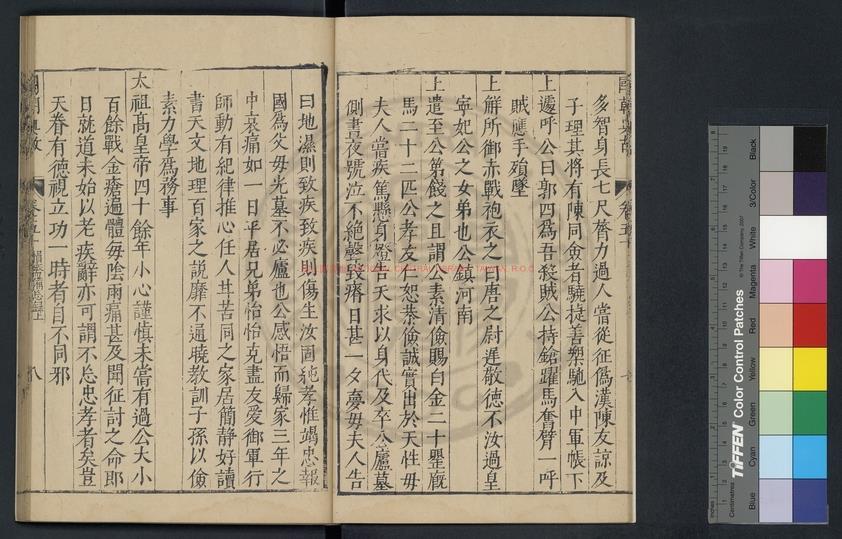 多智身長七尺膂力過人嘗從征偽漢陳友諒及
子理其將有陳同僉者驍㨗善槊馳入中軍帳下
上遽呼公曰郭四為吾殺賊公持鎗躍馬奮臂一呼
賊應手殞墜
上解所御赤戰袍衣之曰唐之尉遲敬德不汝過皇
寧妃公之女弟也公鎮河南
上遣至公第餞之且謂公素清儉賜白金二十罌廐
馬二十二匹公孝友仁恕恭儉誠實出於天性母
夫人嘗疾篤懸身燈告天求以身代及卒公廬墓
側晝夜號泣不絕聲致瘠日甚一夕夢母夫人告
曰地濕則致疾致疾則傷生汝固純孝惟竭忠報
國為父母光墓不必廬也公感悟而歸家三年之
中哀痛如一日平居兄弟怡怡克盡友愛御軍行
師動有紀律推心任人甘苦同之家居簡静好讀
書天文地理百家之説靡不通曉教訓子孫以儉
素力學為務事
太祖高皇帝四十餘年小心謹慎未嘗有過公大小
百餘戰金瘡遍體毎陰雨痛甚及聞征討之命即
日就道未始以老疾辭亦可謂不忘忠孝者矣豈
天眷有德視立功一時者自不同邪
NATIONAL CENTRAL LIBRARY, TAIWAN, R.O.C.
TIFFEN Color Control Patches
© The Tiffen Company, 2007
Centimetres
Inches
Blue
Cyan
Green
Yellow
Red
Magenta
White
3/Color
Black